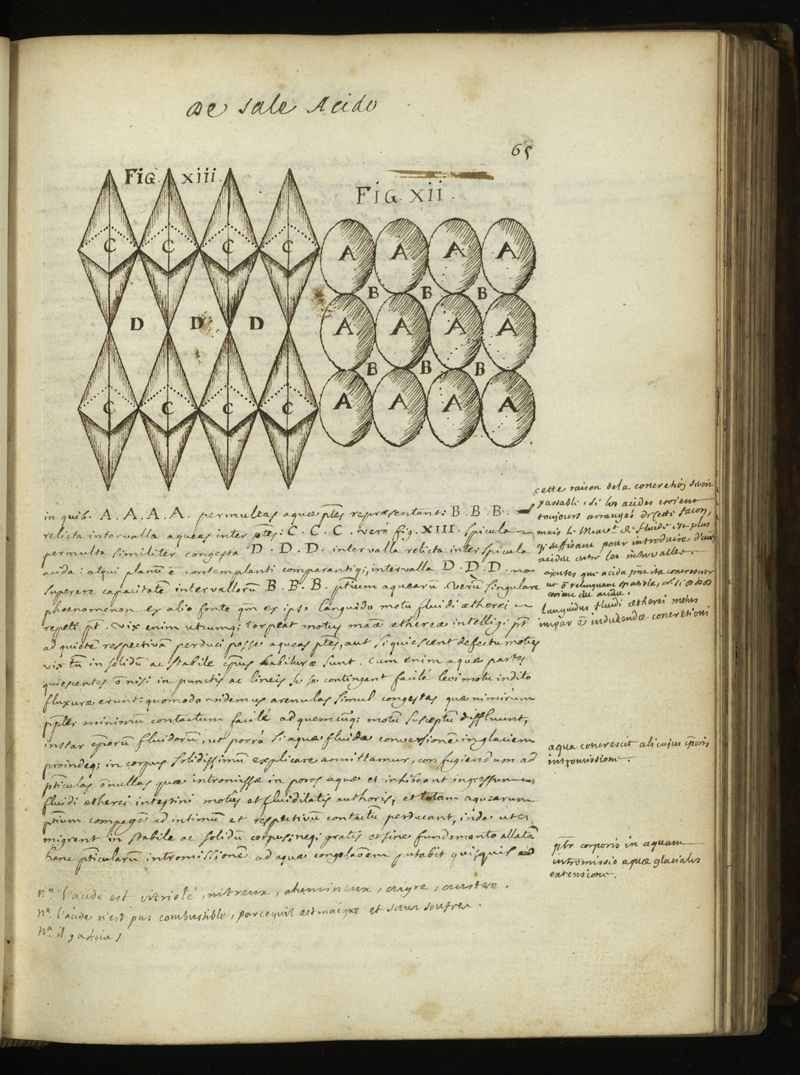 De Sale Acido
65
FIG. xiii.
FIG. xii.
C C C C
D D D
C C C C
A A A A
B B B
A A A A
B B B
A A A A
in quib. A. A. A. A. permultas aquae ptes repraesentant: B. B. B.
relicta intervalla aqueas inter ptes: C. C. C. vero fig. XIII. spicula
permulta similiter congesta D. D. D. intervalla relicta inter spicula
acida: atqui planū ē contemplanti comparantiq; intervalla D. D. D. no
superare capacitatē intervallorū B. B. B. ptium aquearū. verū singulare
phoenomenon ex alio fonte qm ex ipso languido motu fluidi aetherei
repeti pt. vix enim utcumq; torpeat motus mae aethereae intelligi pt
ad quietē respectivam perduci posse aqueas ptes, aut si quiescent defectu motus
vix tn in solidū ac stabile habiturae sunt. Cum enim aquae partes
quiescentes nisi in punctis ac lineis se se contingant facile levi motu indito
fluxurae erunt: quomodo videmus arenulas simul congestas quae nimirum
ppter minimū contactum facilè ad quemcūq; motū susceptū diffluunt,
instar fluidorū, ut porrò si aquae fluidae conversionē in glaciem
proindeq; in corpus solidissimū explicare annittamur, confugiendum ad
pticulas nonnullas quae intromissae in poros aquae et inficiant ingressum
fluidi aetherei intestini motus et fluiditatis authoris, et totam aquearum
ptium compagē ad intimum et respectivū contactū perducant, inde ut
migrent in stabile ac solidū corpus; neq; gratis et sine fundamento allatā
hanc pticularū intromissionē ad aquae congelaōem putabit quisquis
cette raison de la concretion seroit
passable, si les acides etoient
toujours arrangés de cette facon,
mais le mouv.t de fluide est plus
q; suffisant pour introduire d'autres
acides entre les intervalles.
languidus fluidi aetherei motus
impar ē inducendae concretioni
aqua concrescit alicujus cporis
intromissione.
ptr corporis in aquam
intromissio aquae glacialis
extensione.
n.a l'acide est vitriolé, nitreux, alumineux, aigre, austere.
n.a l'acide n'est pas combustible, parcequil est maigre et sans soufre.
n.a il